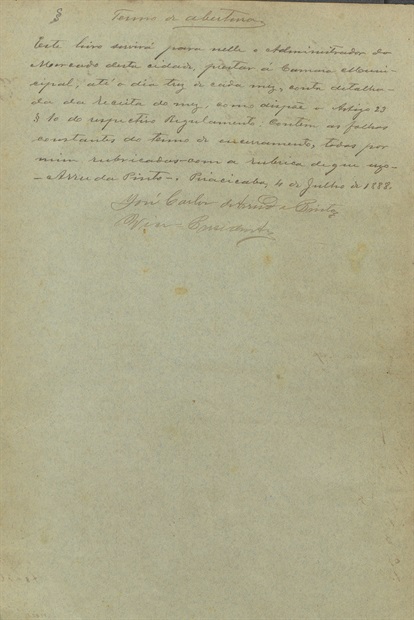 Termo de abertura
Este livro servirá para nelle o Administrador do
Mercado desta cidade, prestar á Camara Muni-
cipal, até o dia trez de cada mez, conta detalha-
da da receita do mez, como dispõe o Artigo 23
§ 10 do respectivo Regulamento. Contém as folhas
constantes do termo de encerramento, todas por
mim rubricadas com a rubrica de que uzo
- Arruda Pinto -. Piracicaba, 4 de Julho de 1888.
José Carlos de Arruda Pinto
Vice Presidente